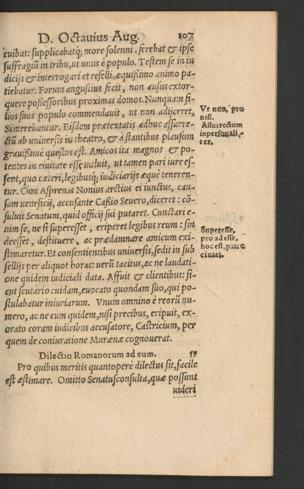 D. Octauius Aug. 107
cuibat: supplicabatq; more solenni. ferebat & ipse
suffragiũ in tribu, ut unus è populo. Testem se in iu
dicijs & interrogari et refelli, æquissimo animo pa-
tiebatur. Forum angustius fecit, non ausus extor-
quere possessoribus proximas domos. Nunquam fi-
lios suos populo commendauit, ut non adijceret,
Si merebuntur. Eisdem prætextatis adhuc assurre-
ctũ ab uniuersis in theatro, & à stantibus plausum
grauissimè questus est. Amicos ita magnos & po-
tentes in ciuitate esse uoluit, ut tamen pari iure es-
sent, quo cæteri, legibusq; iudiciarijs æque teneren-
tur. Cum Asprenas Nonius arctius ei iunctus, cau-
sam ueneficij, accusante Caßio Seuero, diceret: cõ-
suluit Senatum, quid officij sui putaret. Cunctari e-
nim se, ne si superesset, eriperet legibus reum: sin
deesset, destituere, ac prædamnare amicum exi-
stimaretur. Et consentientibus uniuersis, sedit in sub
sellijs per aliquot horas: uerũ tacitus, ac ne laudati-
one quidem iudiciali data. Affuit & clientibus: si-
cut scutario cuidam, euocato quondam suo, qui po-
stulabatur iniuriarum. Vnum omnino è reorũ nu-
mero, ac ne eum quidem, nisi precibus, eripuit, ex-
orato coram iudicibus accusatore, Castricium, per
quem de coniuratione Murænæ cognouerat.
Dilectio Romanorum ad eum. 57
Pro quibus meritis quantopere dilectus sit, facile
est æstimare. Omitto Senatusconsulta, quæ possunt
uideri
Vt non, pro
nisi.
Assurrectum
inpersonali,
ter.
Superesse,
pro adesse,
hoc est, patro
cinari.